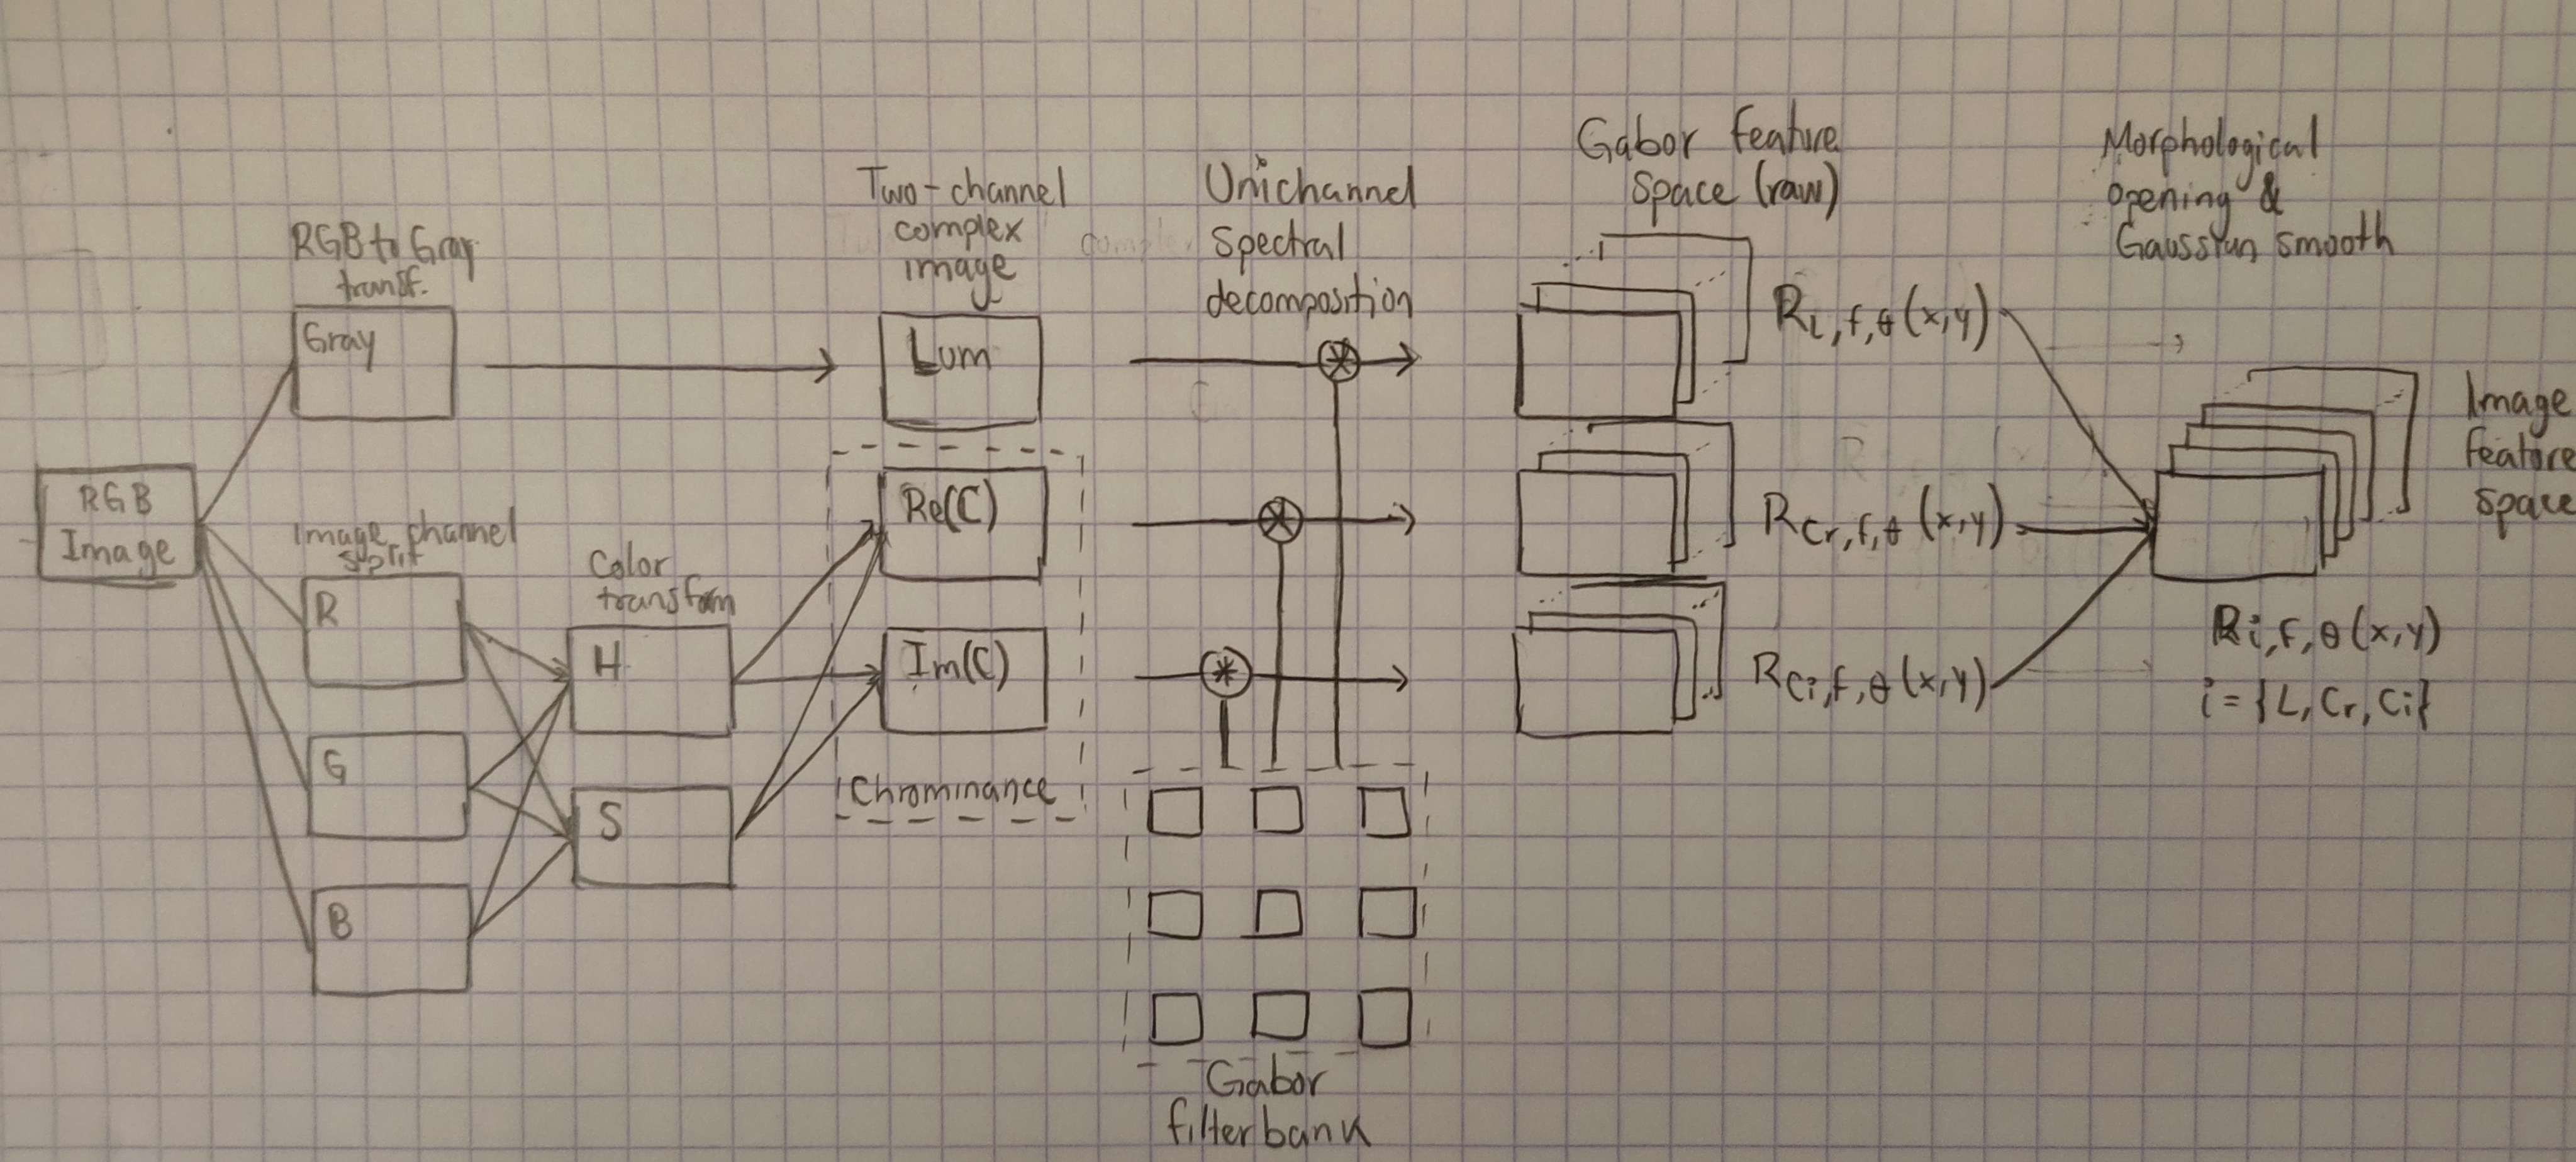 RGB
Image
RGB to Gray
transf.
Gray
Image channel
split
R
G
B
Color
transform
H
S
Two-channel
complex
image
Lum
Re(C)
Im(C)
Chrominance
Unichannel
Spectral
decomposition
Gabor
filterbank
Gabor feature
space (raw)
R_L,f,θ(x,y)
R_Cr,f,θ(x,y)
R_Ci,f,θ(x,y)
Morphological
opening &
Gaussian smooth
Image
feature
space
R_i,f,θ(x,y)
i={L,Cr,Ci}